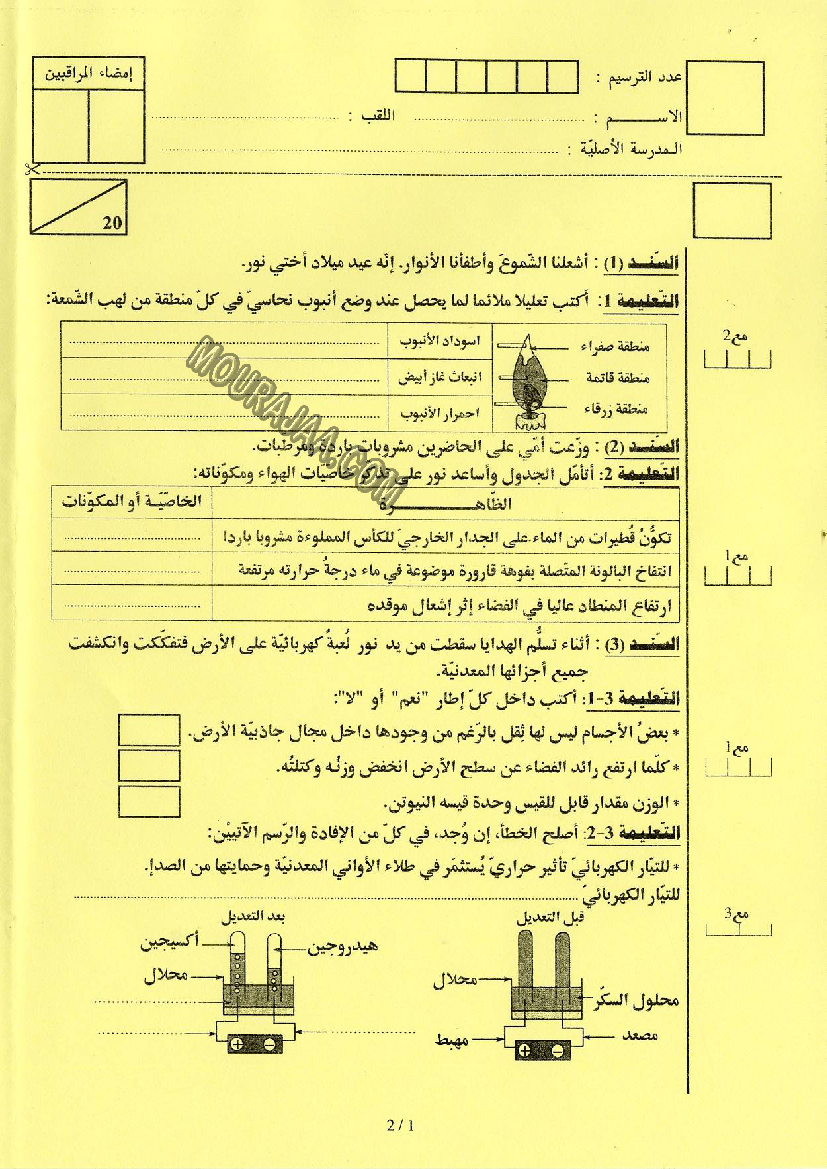 إمضاء المراقبين
عدد الترسيم :
الاســـــم : ........................ اللقب : ........................
المدرسة الأصليّة : ........................
20
السّنــد (1) : أشعلنا الشّموعَ وأطفأنا الأنوار. إنّه عيد ميلاد أختي نور.
التّعليمة 1: أكتب تعليلا ملائما لما يحصل عند وضع أنبوب نحاسيّ في كلّ منطقة من لهب الشّمعة:
مع2
منطقة صفراء
اسوداد الأنبوب
منطقة قاتمة
انبعاث غاز أبيض
منطقة زرقاء
احمرار الأنبوب
MOURAJAA.COM
السّنــد (2) : وزّعت أمّي على الحاضرين مشروبات باردة ومرطّبات.
التّعليمة 2: أتأمّل الجدول وأساعد نور على تذكر خاصيّات الهواء ومكوّناته:
الظّاهــــــــرة
الخاصيّة أو المكوّنات
تكوُّنْ قُطيرات من الماء على الجدار الخارجيّ للكأس المملوءة مشروبا باردا
مع1
انتفاخ البالونة المتّصلة بفوهة قارورة موضوعة في ماء درجةُ حرارته مرتفعة
ارتفاع المنطاد عاليا في الفضاء إثر إشعال موقده
السّنــد (3) : أثناء تسلُّم الهدايا سقطت من يد نور لُعبةٌ كهربائيّة على الأرض فتفكّكت وانكشفت
جميع أجزائها المعدنيّة.
التّعليمة 3-1: أكتب داخل كلّ إطار "نعم" أو "لا":
* بعضُ الأجسام ليس لها ثِقل بالرّغم من وجودها داخل مجال جاذبيّة الأرض.
مع1
* كلّما ارتفع رائد الفضاء عن سطح الأرض انخفض وزنُه وكتلتُه.
* الوزن مقدار قابل للقيس وحدة قيسه النيوتن.
التّعليمة 3-2: أصلح الخطأ، إن وُجد، في كلّ من الإفادة والرّسم الآتيَيْن:
* للتيّار الكهربائيّ تأثير حراريّ يُستثمَر في طلاء الأواني المعدنيّة وحمايتها من الصدإ.
للتيّار الكهربائيّ ........................
مع3
قبل التعديل
بعد التعديل
هيدروجين
أكسيجين
محلال
محلال
محلول السكّر
مصعد
مهبط
+
−
+
−
2 / 1